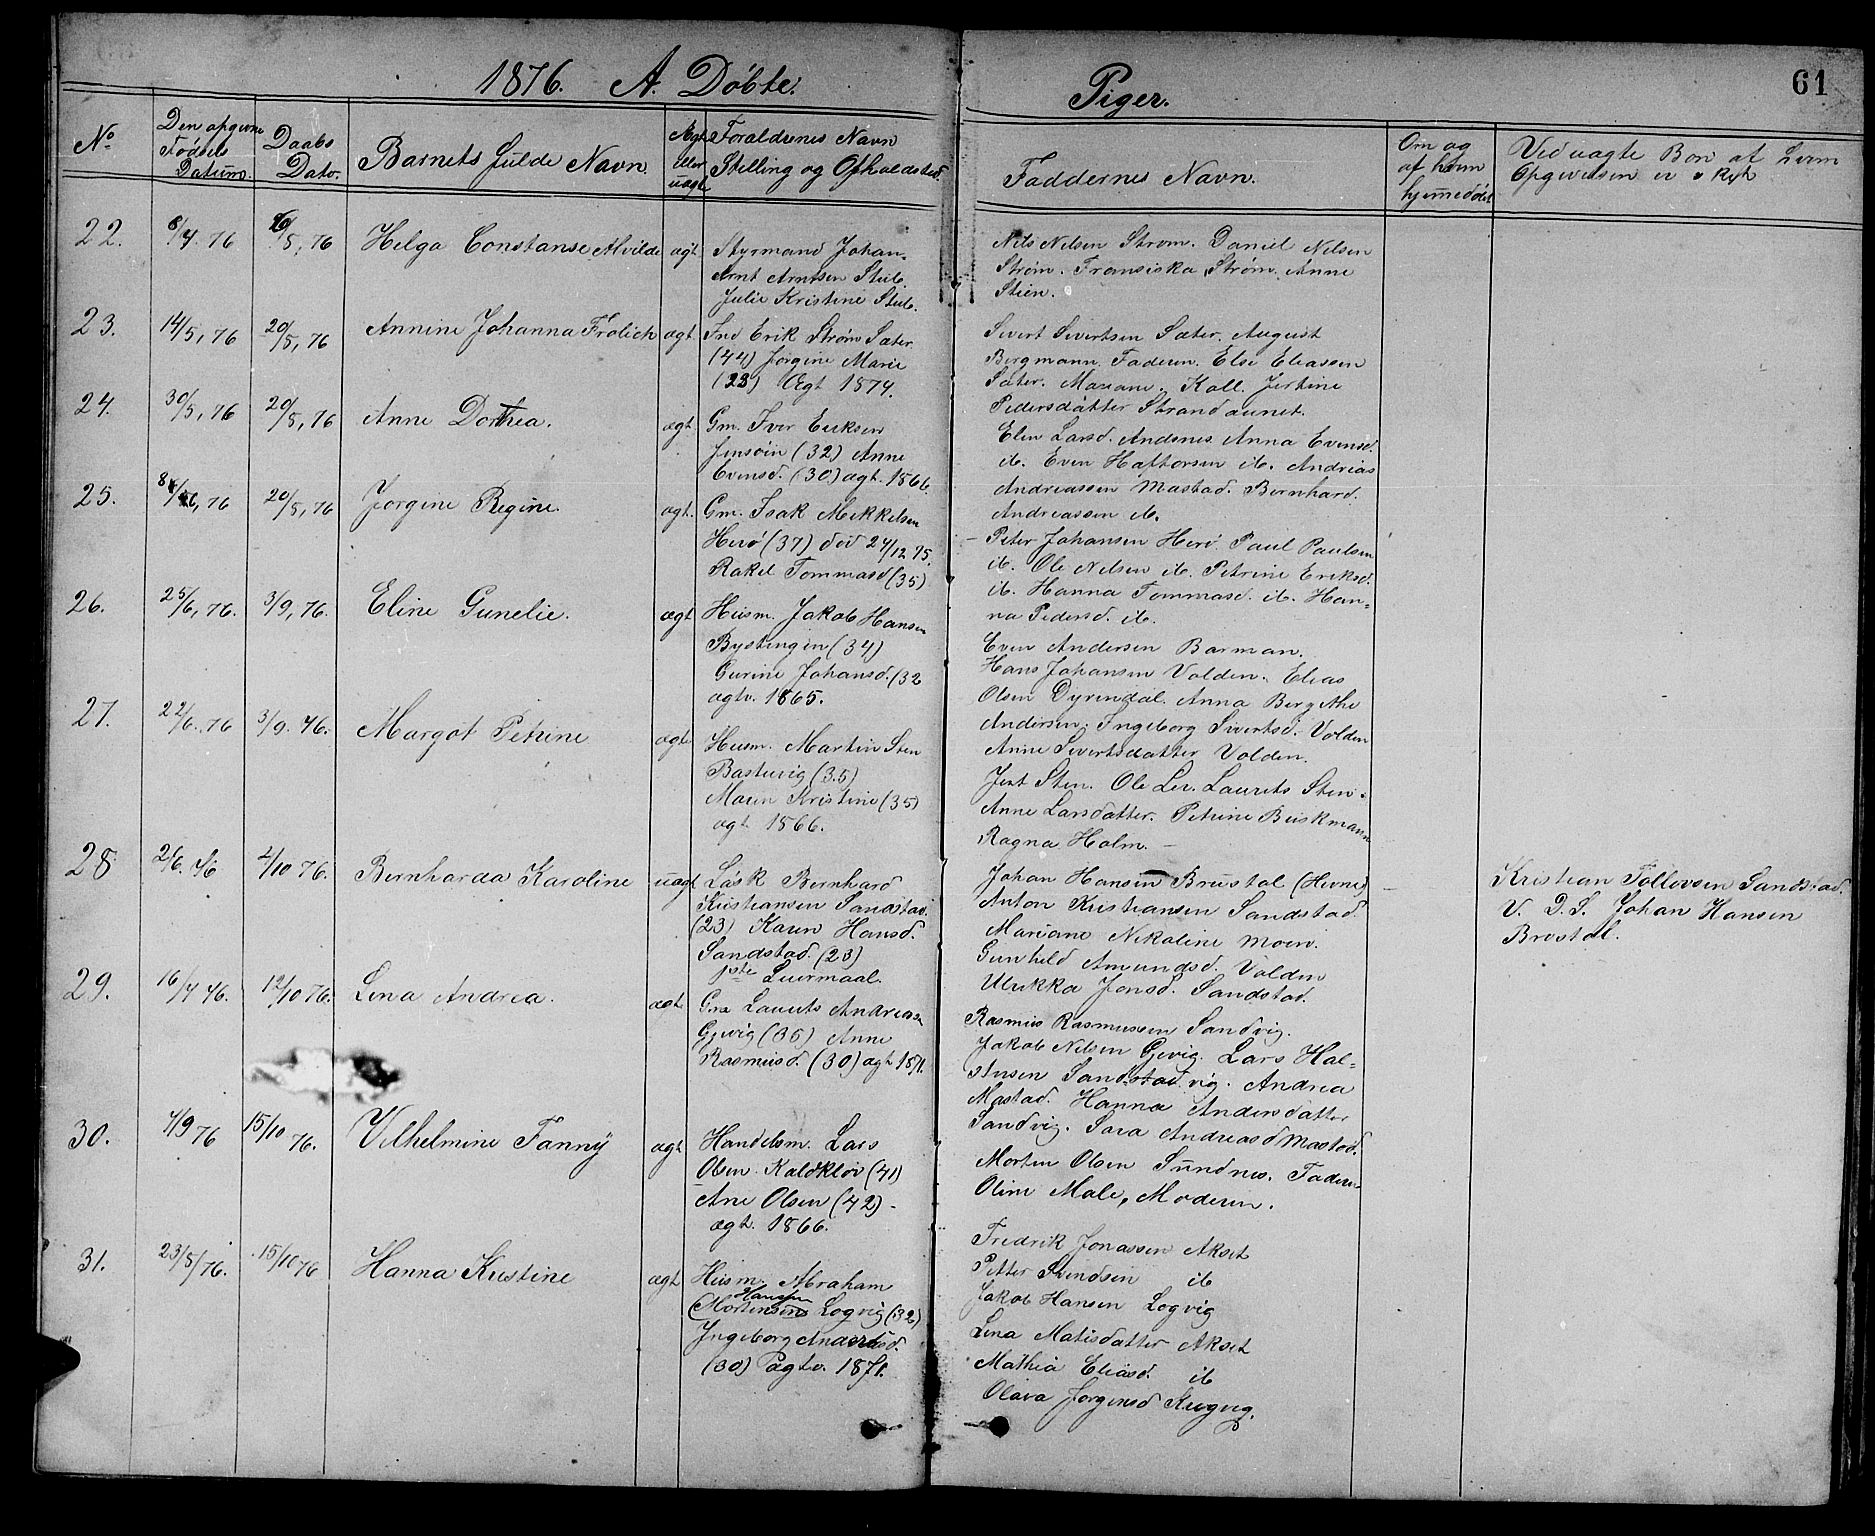 1876. A. Døbte. Piger. 61
No
Den opgivne Fødsels Datum.
Daabs Dato.
Barnets fulde Navn.
Ægte eller uægte
Forældrenes Navn Stilling og Opholdssted.
Faddernes Navn.
Om og af hvem hjemmedøbt
Ved uægte Børn af hvem Opgivelsen er skeh
22. 8/4 76 /5, 76 Helga Constanse Alvilde ægt
Styrmand Johan
Arnt Arntsen Stub.
Julie Kristine Stub.
Nils Nilsen Strøm. Daniel Nilsen
Strøm. Fransiska Strøm. Anne
Stien.
23. 14/5, 76 20/5, 76 Annine Johanna Frolich ægt
Ind Erik Strøm Sæter
(44) Jørgine Marie
(23) Ægt 1874.
Sivert Sivertsen Sæter. August
Bergmann. Faderen. Else Eliassen
Sæter. Mariane. Kall. Jertine
Pedersdatter Strandaunet.
24. 30/5, 76 20/5, 76 Anne Dorthea. ægt
Gm. Iver Eriksen
Jensøin (32) Anne
Evensd. (30) ægt. 1866.
Elen Larsd. Andsnes. Anna Evensd.
it. Even Hattorsen it. Andreas
Andreassen Mastad. Bernhard
Andreassen it.
25. 8/6, 76 20/5, 76 Jørgine Regine. ægt.
Gm. Isak Mikkelsen
Herø (37) død 24/12 75.
Rakel Tommasd (35)
Peter Johansen Herø. Paul Paulsen
it. Ole Nilsen it. Petrine Eriksd.
it. Hanna Tommasd. it. Han-
na Pedersd. it.
26. 25/6, 76. 3/9, 76. Eline Gunelie. ægt
Husm. Jakob Hansen
Bystingen (34)
Gurine Johansd. (32
ægtv. 1865.
Even Andersen Barman.
Hans Johansen Volden. Elias
Olsen Dyrendal. Anna Bergithe
Andersen. Ingeborg Sivertsd. Volden
Anne Sivertsdatter Volden.
27. 22/6. 76 3/9. 76. Margot Petrine ægt.
Husm. Martin Sten
Bastuvig (35)
Maren Kristine (35)
ægt. 1866.
Jent Sten. Ole Ler. Laurits Sten.
Anne Larsdatter. Petrine Buskmann
Ragna Holm. –
28 2/6. 76 2/10 76. Bernharda Karoline uægt
Løsk Bernhard
Kristiansen Sandstad.
(23) Karen Hansd.
Sandstad. (23)
1ste Leiermaal.
Johan Hansen Brustøl (Hevne)
Anton Kristiansen Sandstad.
Mariane Nikoline Moen.
Gunhild Amundsd. Volden
Ulrikka Jonsd. Sandstad.
Kristian Tollovsen Sandstad.
V. D. S. Johan Hansen
Brøstøl.
29. 16/4 76. 12/10 76. Lena Andrea. ægt
Gm Laurits Andreasn
Gjevig (35) Anne
Rasmusd. (30) ægt 1871.
Rasmus Rasmussen Sandvig.
Jakob Nilsen Gjevig. Lars Hal-
stensen Sandstad vig. Andrea
Mastad. Hanna Andersdatter
Sandvig. Sara Andreasd Mastad.
30. 4/9 76 15/10 76. Vilhelmine Fanny ægt
Handelsm. Lars
Olsen Kaldkløv (41)
Ane Olsen (42)
ægt. 1866.
Morten Olsen Sundnes. Faderen
Oline Male, Moderen.
31. 23/8/76. 15/10 76 Hanna Kristine ægt
Husm. Abraham
Hansen
(Mortensen) Logvig (32)
Ingeborg Andersd.
(30) ægtv. 1871.
Fredrik Jonassen Akset
Petter Svendsen it
Jakob Hansen Logvig
Lena Matisdatter Akset
Mathia Eliasd. it
Olava Jørgensd Krogvig.